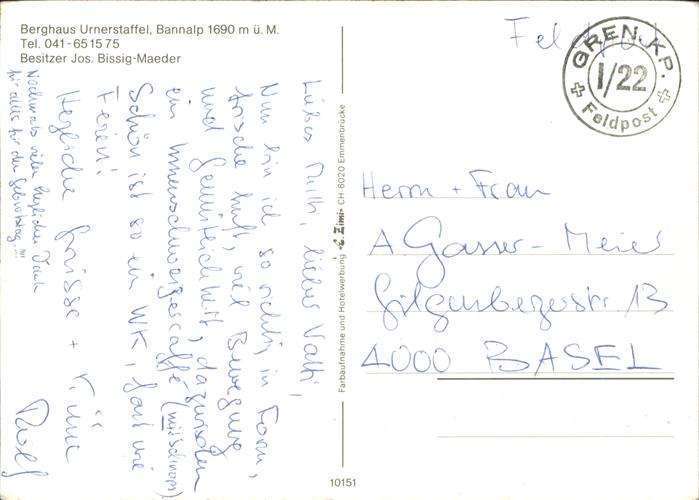 Berghaus Urnerstaffel, Bannalp 1690 m ü. M.
Tel. 041-65 15 75
Besitzer Jos. Bissig-Maeder
Liebes Mitti, lieber Vatti,
Nun bin ich so richtig in Form,
frische Luft, viel Bewegung
und Gemütlichkeit, dazwischen
ein Innerschwyzercaffé (mit Schnaps)
Schön ist so ein WK, fast wie
Ferien!
Herzliche Grüsse +
Rolf
Nochmals vielen herzlichen Dank
für alles für den Geburtstag!!!
Farbaufnahme und Hotelwerbung E. Zimi CH-6020 Emmenbrücke
10151
Feldpost
GREN. KP.
I/22
Feldpost
Herrn + Frau
A. Gasser-Meier
Gilgenbergerstr. 13
4000 BASEL